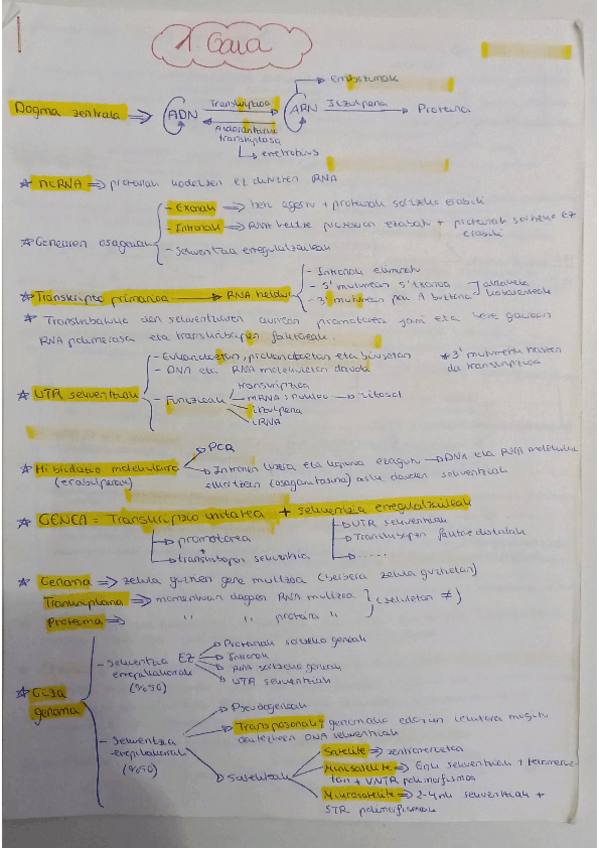 1. Gaia
Entzimak
Dogma zentrala ⇒ ADN Transkripzioa ARN Itzulpena → Proteina
Alderantzizko
transkriptasa
↳ erretrobirus
* ncRNA ⇒ proteinak kodetzen ez dituzten RNA
- Exonak ⇒ beti agertu + proteinak sortzeko erabili
* Genearen osagaiak - Intronak ⇒ RNA heltze prozesuan ezabatu + proteinak sortzeko EZ
erabili
- Sekuentzia erregulatzaileak
* Transkripto primarioa → RNA heldua - Intronak eliminatu
- 5' muturrean 5' txanoa
- 3' muturrean poli A buztana
* Transkribatuko den sekuentziaren aurrean promotorea jarri eta bere gainean
RNA polimerasa eta transkripzio faktoreak.
* UTR sekuentziak - Eukariotoetan, prokariotoetan eta birusetan
- DNA eta RNA molekuletan daude
- Funtzioak transkripzioa
mRNA: nukleo → zitosol
itzulpena
iRNA
* 3' muturreraino hasten
da transkripzioa
* Hibridazio molekularra → PCR
(erabilpenak) → Intronen luzera eta kopurua ezagutu → DNA eta RNA molekulak
elkartzean (osagarritasuna) aske dauden sekuentziak
* GENEA = Transkripzio unitatea + sekuentzia erregulatzaileak
↳ promotorea ↳ UTR sekuentziak
↳ transkribapen sekuentzia ↳ Transkribapen faktore distalak
↳ .....
* Genoma ⇒ zelula guztien gene multzoa (berbera zelula guztietan)
Transkriptoma ⇒ momentuan dagoen RNA multzoa (zeluletan ≠)
Proteoma ⇒ " " proteina "
* Giza
genoma
- Sekuentzia EZ
errepikakorrak
(%50)
→ Proteinak sortzeko geneak
→ Intronak
→ RNA sortzeko geneak
→ UTR sekuentziak
- Sekuentzia
errepikakorrak
(%50)
→ Pseudogeneak
→ Transposonak: genomako edozein lekutara mugitu
daitezkeen DNA sekuentziak
→ Sateliteak
Satelite ⇒ zentromeroetan
Minisatelite ⇒ 6nu sekuentziak + telomeroe-
tan + VNTR polimorfismoa
Mikrosatelite ⇒ 2-4nu sekuentziak +
STR polimorfismoak